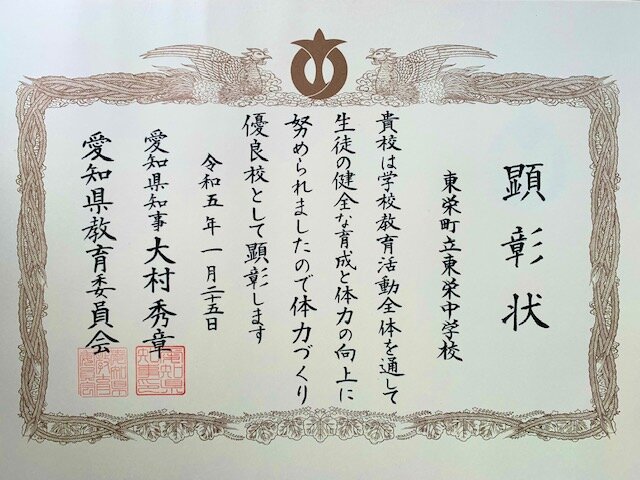 顕彰状
東栄町立東栄中学校
貴校は学校教育活動全体を通して
生徒の健全な育成と体力の向上に
努められましたので体力づくり
優良校として顕彰します
令和五年一月二十五日
愛知県知事大村秀章
愛知県教育委員会